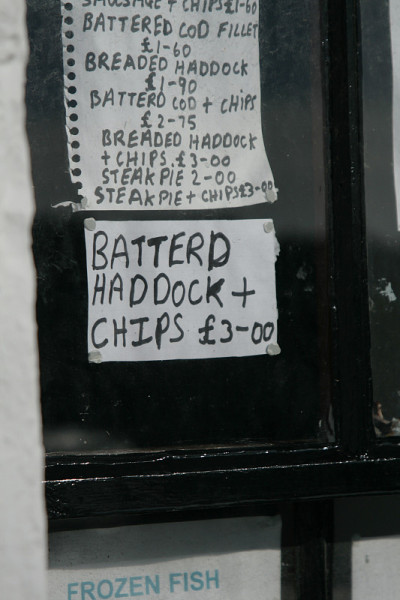 SAUSAGE + CHIPS £1-60
BATTERED COD FILLET
£1-60
BREADED HADDOCK
£1-90
BATTERD COD + CHIPS
£2-75
BREADED HADDOCK
+ CHIPS £3-00
STEAK PIE 2-00
STEAK PIE + CHIPS £3-00
BATTERD
HADDOCK +
CHIPS £3-00
FROZEN FISH